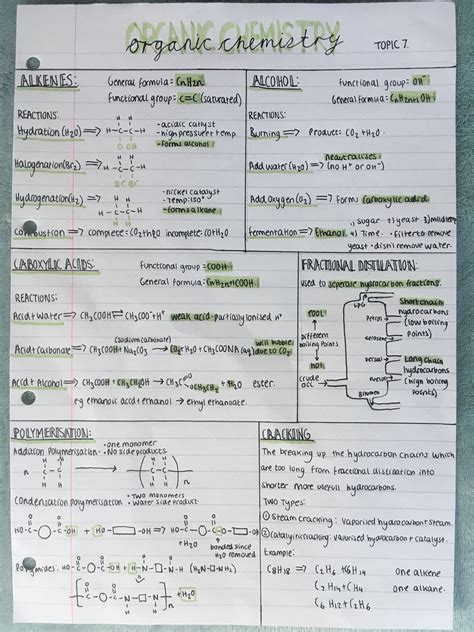 ORGANIC CHEMISTRY
organic chemistry
TOPIC 7.
ALKENES:
General formula = CnH2n
Functional group: C=C (saturated)
REACTIONS:
Hydration (H2O) ⟹
- acidic catalyst
- high pressure + temp
- forms alcohol
Halogenation (Br2) ⟹
Br Br
Hydrogenation (H2) ⟹
- nickel catalyst
- Temp: 150°
- forms alkane
Combustion → complete = CO2 + H2O incomplete = CO + H2O
ALCOHOL:
Functional group = OH
General formula = CnH2n+1 OH
REACTIONS:
Burning ⟹ Product: CO2 + H2O
neutralises
Add water (H2O) ⟹ (no H+ or OH-)
Add oxygen (O2) ⟹ forms carboxylic acid
1) sugar 2) yeast
fermentation ⟹ Ethanol 4) Time - filter to remove
yeast - distil remove water.
CABOXYLIC ACIDS:
Functional group: COOH
General formula: CnH2n+1 COOH
REACTIONS:
Acid + water ⟹ CH3COOH ⇌ CH3COO- + H+ weak acid - partially ionised H+
(sodium carbonate)
Acid + carbonate ⟹ CH3COOH + Na2CO3 → CO2 + H2O + CH3COONA (aq) will bubble due to CO2
Acid + Alcohol ⟹ CH3COOH + CH3CH2OH → CH3C O OCH2CH3 + H2O ester.
eg ethanoic acid + ethanol → ethyl ethanoate.
FRACTIONAL DISTILATION:
used to seperate hydrocarbon fractions.
cool
different
boiling points
hot
crude
oil
LPG
Petrol
Kerosene
Diesel
Fuel oil
Bitumen
Short chain
hydrocarbons
(low boiling
points)
Long chain
hydrocarbons
(high boiling
points)
POLYMERISATION:
Addition Polymerisation
- one monomer
- No side products
Condensation Polymerisation
- Two monomers
- Water side product
+ H2O
bonded since
H2O removed
Polyamides:
(H2N-□-NH2)
+ H2O
CRACKING
The breaking up the hydrocarbon chains which
are too long from fractional distillation into
shorter more usefull hydrocarbons.
TWO TYPES:
① Steam cracking: vaporised hydrocarbon + steam.
② Catalytic cracking: vaporised hydrocarbon + catalyst.
Example:
C8H18 ⟹ C2H6 + C6H14 one alkane
C7H14 + CH4 one alkane.
C6H12 + C2H6